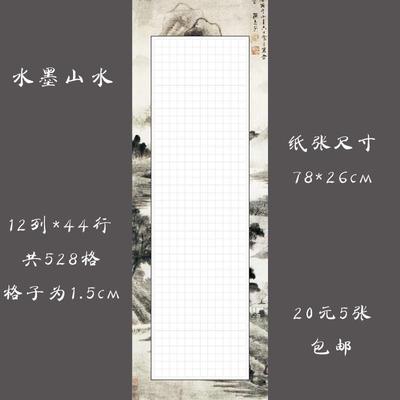 水墨山水
12列*44行
共528格
格子为1.5cm
纸张尺寸
78*26cm
20元5张
包邮